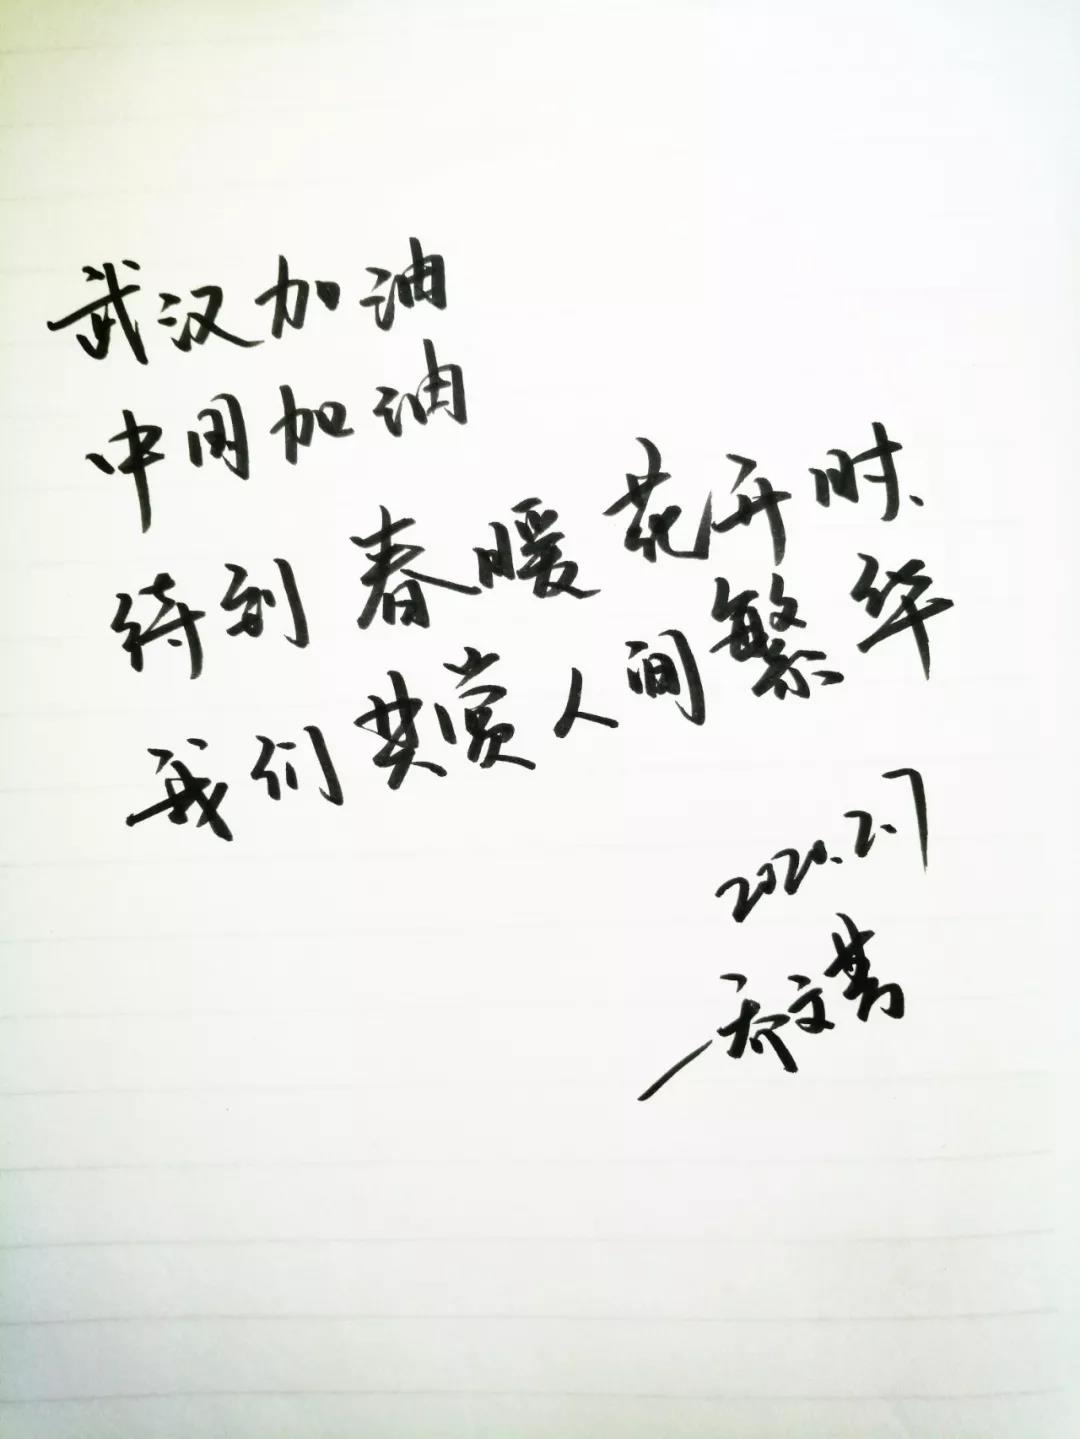 武汉加油
中国加油
待到春暖花开时、
我们共赏人间繁华
2020.2.7
—乔文菁